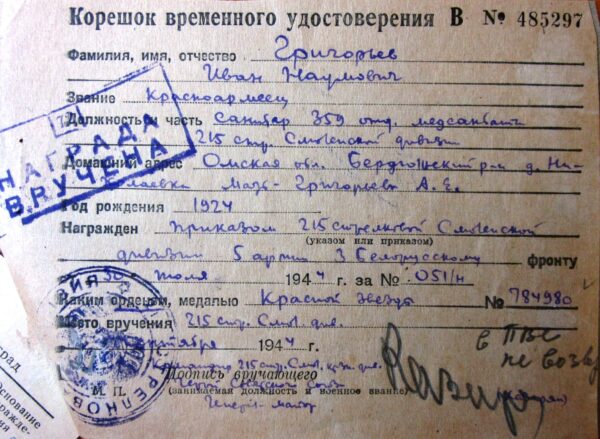 Корешок временного удостоверения В № 485297
Фамилия, имя, отчество Григорьев
Иван Наумович
Звание Красноармеец
Должность и часть санитар 359 отд. медсанбат
215 стр. Смоленской дивизии
Домашний адрес Омская обл. Бердюжский р-н д. Ни-
колаевка Мать- Григорьева А. Е.
Год рождения 1924
Награжден приказом 215 стрелковой Смоленской
(указом или приказом)
дивизии 5 армии 3 Белорусскому фронту
30 июля 1944 г. за № 051/н
Каким орденом, медалью Красной Звезды № 784980
Место вручения 215 стр. Смол. див.
сентября 1944
215 стр. Смол. див.
Подпись вручающего
Герой Советского Союза
М. П. (занимаемая должность и военное звание)
Генерал-майор
НАГРАДА
ВРУЧЕНА
в ПВС
не возвр
Основание